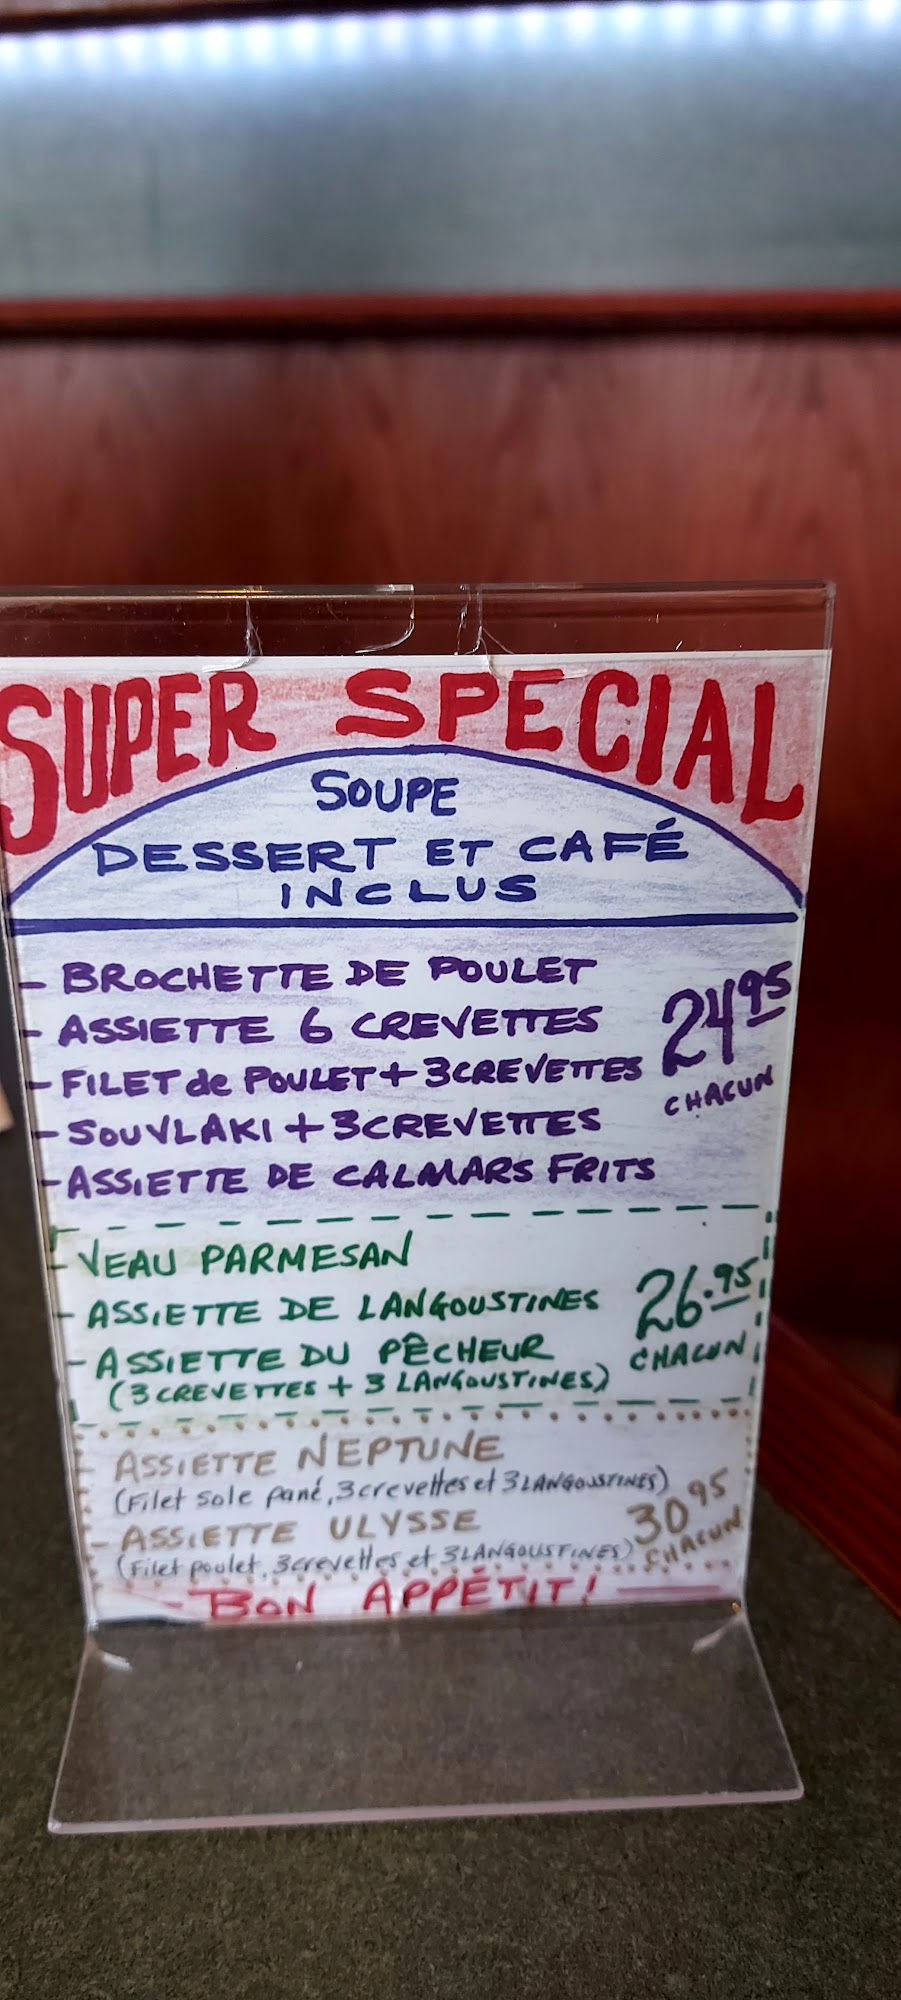 SUPER SPECIAL
SOUPE
DESSERT ET CAFÉ
INCLUS
- BROCHETTE DE POULET
- ASSIETTE 6 CREVETTES
- FILET de POULET + 3 CREVETTES
- SOUVLAKI + 3 CREVETTES
- ASSIETTE DE CALMARS FRITS
24 95
CHACUN
- VEAU PARMESAN
- ASSIETTE DE LANGOUSTINES
- ASSIETTE DU PÊCHEUR
(3 CREVETTES + 3 LANGOUSTINES)
26.95
CHACUN
- ASSIETTE NEPTUNE
(Filet sole pané, 3 crevettes et 3 LANGOUSTINES)
- ASSIETTE ULYSSE
(Filet poulet, 3 crevettes et 3 LANGOUSTINES)
30 95
CHACUN
- BON APPÉTIT! -